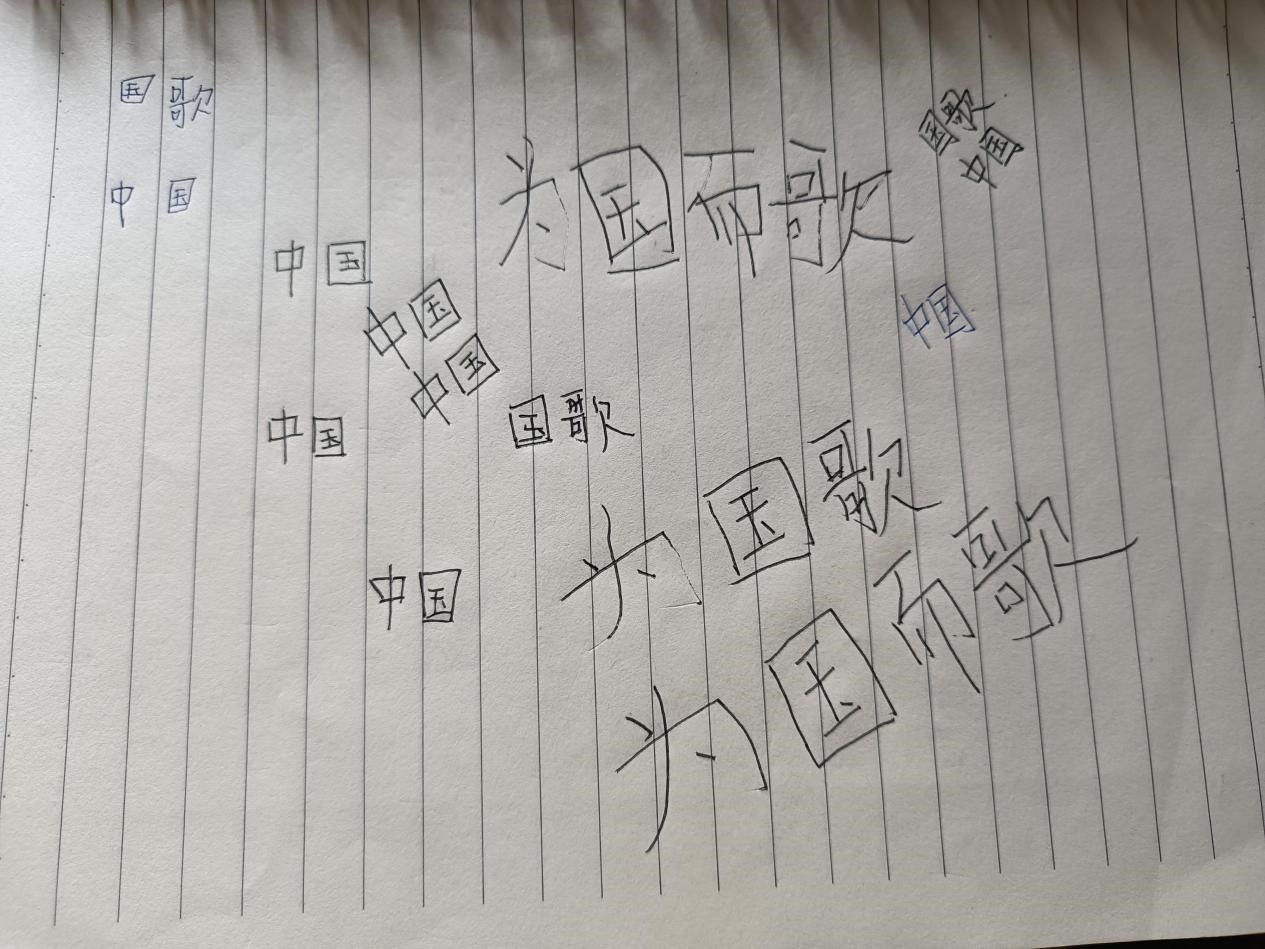 国歌
国歌
中国
为国而歌
中国
中国
中国
中国
中国
中国
国歌
为国歌
中国
为国而歌